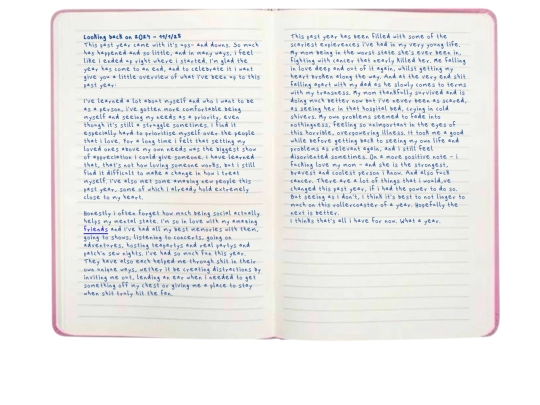 Looking back on 2024 - 11/1/25
This past year came with it's ups- and downs. So much
has happened and so little, and in many ways, i feel
like i ended up right where i started, i'm glad the
year has come to an end, and to celebrate it i want
give you a little overview of what i've been up to this
past year:
I've learned a lot about myself and who i want to be
as a person, i've gotten more comfortable being
myself and seeing my needs as a priority, even
though it's still a struggle sometimes, i find it
especially hard to prioritise myself over the people
that i love. For a long time i felt that setting my
loved ones above my own needs was the biggest show
of appreciation i could give someone, i have learned
that, that's not how loving someone works, but i still
find it difficult to make a change in how i treat
myself, i've also met some amazing new people this
past year, some of which i already hold extremely
close to my heart.
Honestly i often forget how much being social actually
helps my mental state, i'm so in love with my amazing
friends and i've had all my best memories with them,
going to shows, listening to concerts, going on
adventures, hosting teapartys and real partys and
patch'n sew nights, i've had so much fun this year.
They have also each helped me through shit in their
own unique ways, wether it be creating distractions by
inviting me out, lending an ear when i needed to get
something off my chest or giving me a place to stay
when shit truly hit the fan.
This past year has been filled with some of the
scariest expierences i've had in my very young life.
My mom being in the worst state she's ever been in,
fighting with cancer that nearly killed her. Me falling
in love deep and out of it again, whilst getting my
heart broken along the way. And at the very end shit
falling apart with my dad as he slowly comes to terms
with my transness. My mom thankfully survived and is
doing much better now but i've never been as scared,
as seeing her in that hospital bed, crying in cold
shivers. My own problems seemed to fade into
nothingness, feeling so unimportant in the eyes of
this horrible, overpowering illness. it took me a good
while before getting back to seeing my own life and
problems as relevant again, and i still feel
disoriented sometimes. On a more positive note - i
fucking love my mom - and she is the strongest,
bravest and coolest person i know. And also fuck
cancer. There are a lot of things that i would've
changed this past year, if i had the power to do so.
But seeing as i don't, i think it's best to not linger to
much on this rollercoaster of a year. Hopefully the
next is better.
I thinks that's all i have for now. What a year.